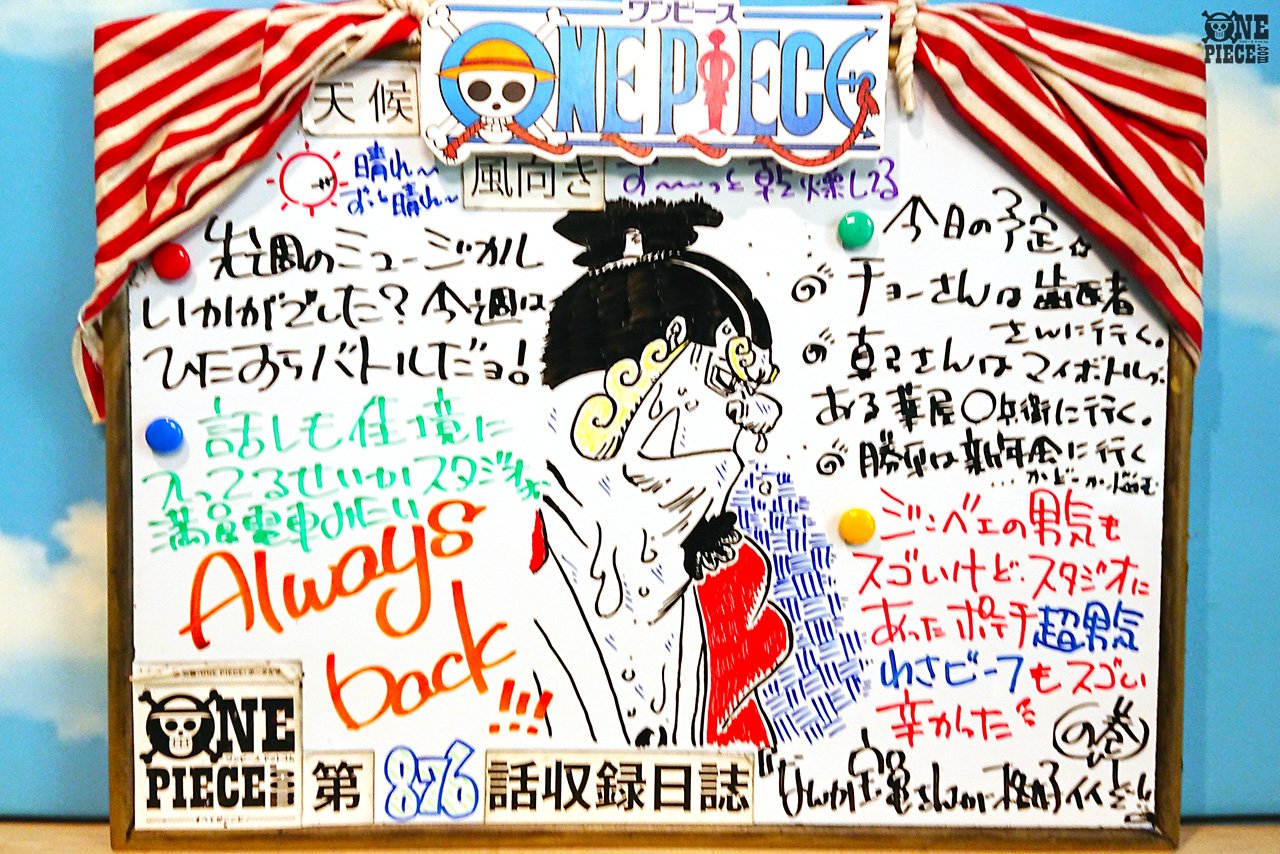 ワンピース
ONE PIECE
ONE
PIECE.COM
天候
晴れ〜
ずっと晴れ〜
風向き
す〜〜っと乾燥してる
先週のミュージカル
いかがでした?今週は
ひたすらバトルだョ!
話しも佳境に
入ってるせいかスタジオが
満員電車みたい
Always
back
!!!
今日の予定☆
チョーさんは歯医者
さんに行く。
真弓さんはマイボトルが
ある 屋〇兵衛に行く。
勝平は新年会に行く
…かどーか悩む
ジンベエの男気も
スゴいけど、スタジオに
あったポテチ超男気
わさビーフもスゴい
辛かった
の巻
ONE
PIECE.COM
第876話収録日誌
"なんか宝亀さんが格好イイぞ